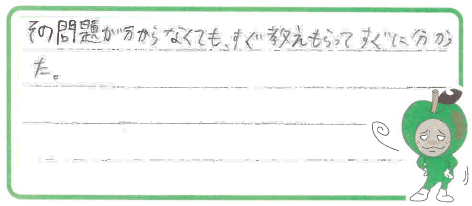 その問題が分からなくても、すぐ教えもらってすぐに分かっ
た。